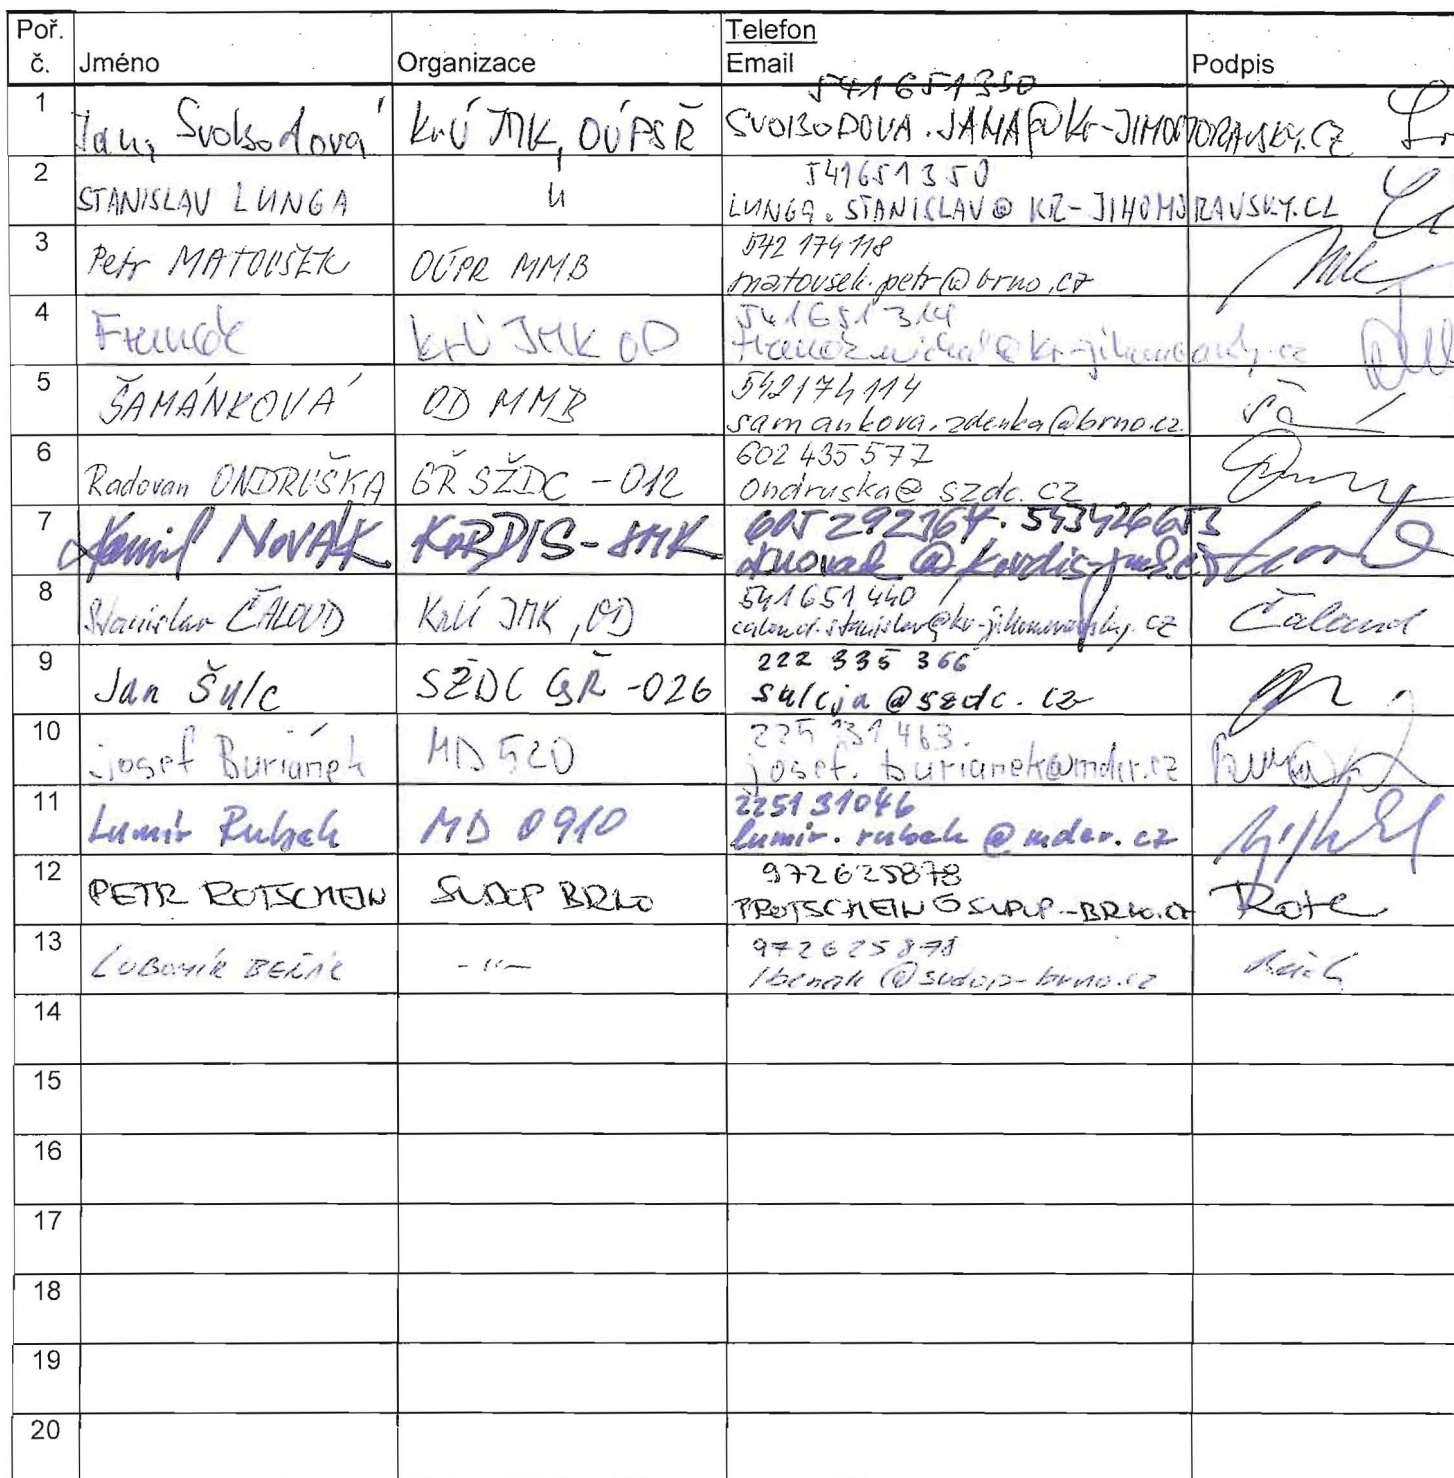 Poř. č. Jméno Organizace Telefon Email Podpis
1 Jana Svobodová KrÚ JMK, OÚPSŘ 541651350
SVOBODOVA.JANA@Kr-JIHOMORAVSKY.CZ
2 STANISLAV LUNGA -"- 541651350
LUNGA.STANISLAV@KR-JIHOMORAVSKY.CZ
3 Petr MATOUŠEK OÚPR MMB 542 174 118
matousek.petr@brno.cz
4 KrÚ JMK OD 541651314
5 ŠAMÁNKOVÁ OD MMB 542174114
samankova.zdenka@brno.cz
6 Radovan ONDRUŠKA GŘ SŽDC - O12 602 435 577
Ondruska@szdc.cz
7 Kamil NOVÁK KORDIS-JMK 605 292164. 543426653
@kordis-jmk.cz
8 Stanislav ČALOUD KrÚ JMK, OD 541 651 440 Čaloud
caloud.stanislav@kr-jihomoravsky.cz
9 Jan Šulc SŽDC GŘ -026 222 335 366
sulcja@szdc.cz
10 Josef Buriánek MD 520 225 131 463.
josef.burianek@mdcr.cz
11 Lumír Rubek MD 0910 225131046
lumir.rubek@mdcr.cz
12 PETR ROTSCHEIN SUDOP BRNO 972625878
PROTSCHEIN@SUDOP-BRNO.CZ
13 -"- 972625878
lbenak@sudop-brno.cz
14
15
16
17
18
19
20